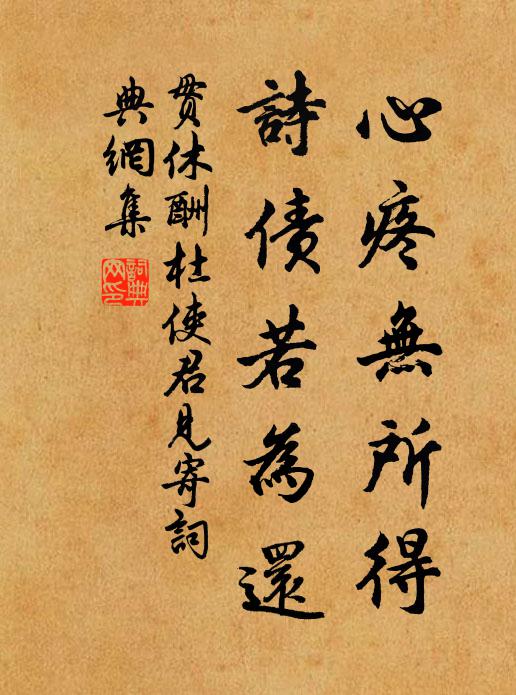 心疼無所得
詩債若為還
貫休酬杜使君見寄詞
典網集
詞典网印